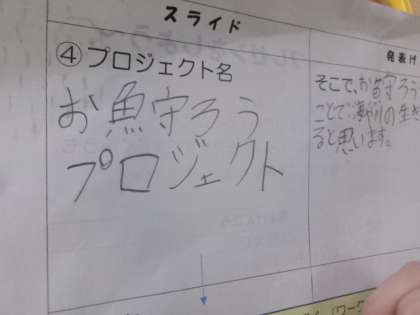 スライド
発表げ
④プロジェクト名
お魚守ろう
プロジェクト
そこで、お魚守ろう
ことで、海や川の生き
ると思います。